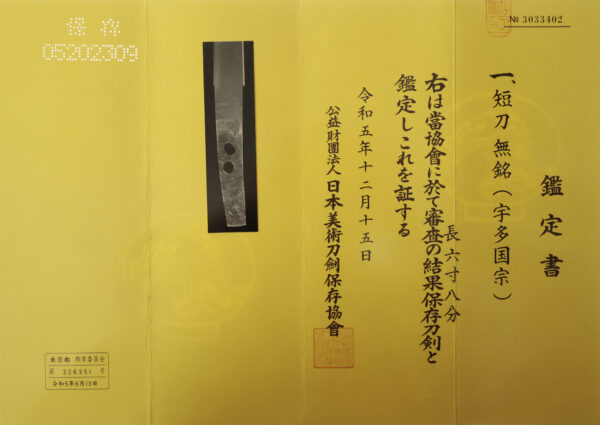 № 3033402
鑑定書
一、短刀 無銘(宇多国宗)
長六寸八分
右は當協會に於て審査の結果保存刀剣と
鑑定しこれを証する
令和五年十二月十五日
公益財團法人 日本美術刀劍保存協會
保存
05202309
東京都 教育委員会
第 326351 号
令和5年6月13日